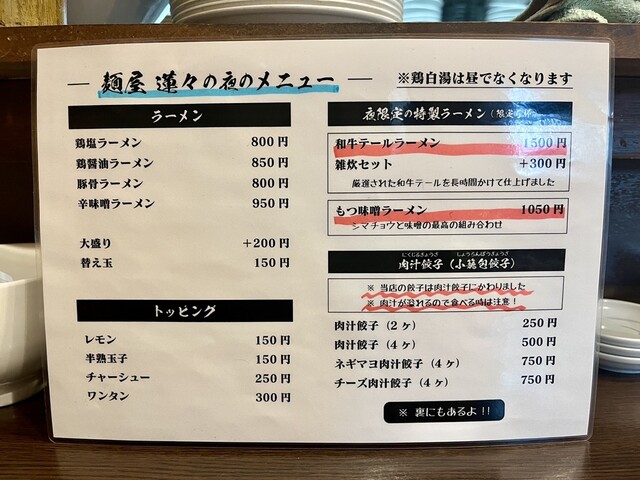 麺屋 蓮々の夜のメニュー
※鶏白湯は昼でなくなります
ラーメン
鶏塩ラーメン 800円
鶏醤油ラーメン 850円
豚骨ラーメン 800円
辛味噌ラーメン 950円
大盛り +200円
替え玉 150円
トッピング
レモン 150円
半熟玉子 150円
チャーシュー 250円
ワンタン 300円
夜限定の特製ラーメン(限定
和牛テールラーメン 1500円
雑炊セット +300円
厳選された和牛テールを長時間かけて仕上げました
もつ味噌ラーメン 1050円
シマチョウと味噌の最高の組み合わせ
にくじるぎょうざ しょうろんぽうぎょうざ
肉汁餃子(小籠包餃子)
※ 当店の餃子は肉汁餃子にかわりました
※ 肉汁が溢れるので食べる時は注意!
肉汁餃子(2ヶ) 250円
肉汁餃子(4ヶ) 500円
ネギマヨ肉汁餃子(4ヶ) 750円
チーズ肉汁餃子(4ヶ) 750円
※ 裏にもあるよ!!